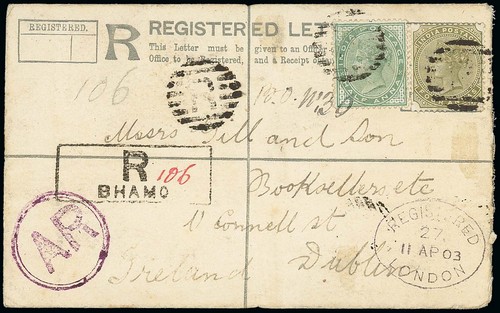 REGISTERED.
R
REGISTERED LET
This Letter must be given to an Officer
Office, to be Registered, and a Receipt
INDIA POSTAGE
106
Messrs Gill and Son
R 106
BHAMO
Booksellers, etc
O'Connell St
AR
Ireland
Dublin
REGISTERED
27
11 AP 03
LONDON